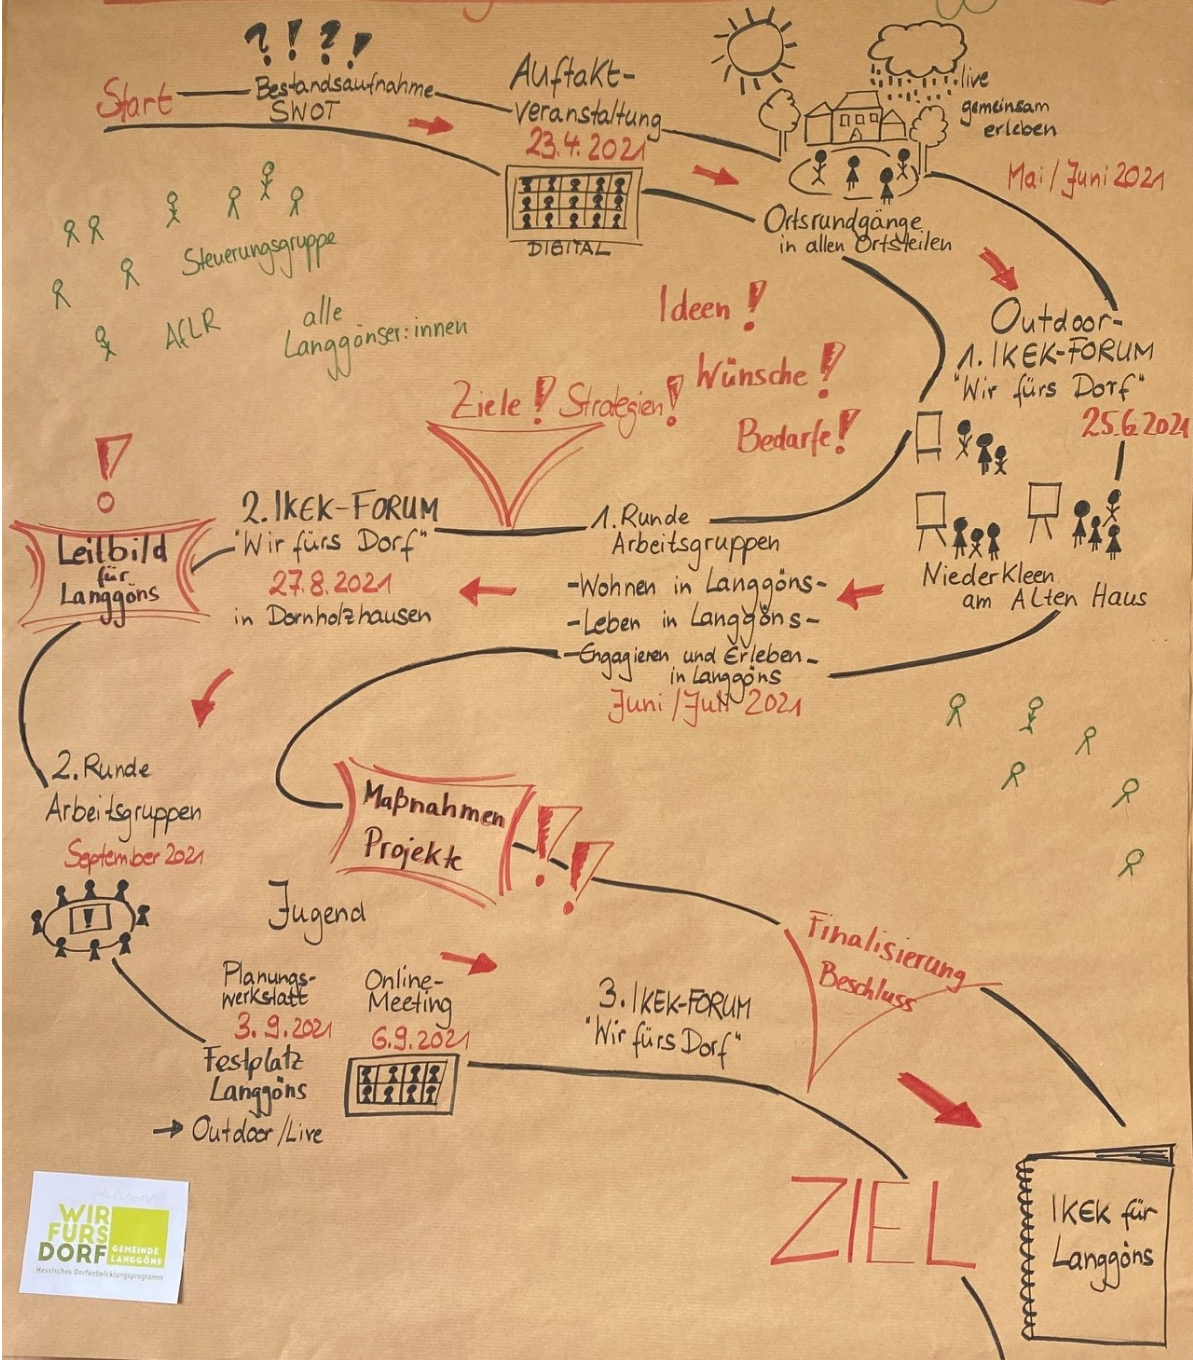 ? ! ? !
Start
Bestandsaufnahme
SWOT
Auftakt-
veranstaltung
23.4.2021
DIGITAL
live
gemeinsam
erleben
Mai/Juni 2021
Ortsrundgänge
in allen Ortsteilen
Steuerungsgruppe
AfLR
alle
Langgönser:innen
Ideen!
Wünsche!
Bedarfe!
Ziele! Strategien!
Outdoor-
1. IKEK-FORUM
"Wir fürs Dorf"
25.6.2021
Niederkleen
am Alten Haus
1. Runde
Arbeitsgruppen
-Wohnen in Langgöns-
-Leben in Langgöns-
-Engagieren und Erleben-
in Langgöns
Juni/Juli 2021
2. IKEK-FORUM
"Wir fürs Dorf"
27.8.2021
in Dornholzhausen
!
Leitbild
für
Langgöns
2. Runde
Arbeitsgruppen
September 2021
!
Maßnahmen
Projekte
!!
Jugend
Planungs-
werkstatt
3.9.2021
Festplatz
Langgöns
→ Outdoor/Live
Online-
Meeting
6.9.2021
3. IKEK-FORUM
"Wir fürs Dorf"
Finalisierung
Beschluss
ZIEL
IKEK für
Langgöns
WIR
FÜRS
DORF
GEMEINDE
LANGGÖNS
Hessisches Dorfentwicklungsprogramm